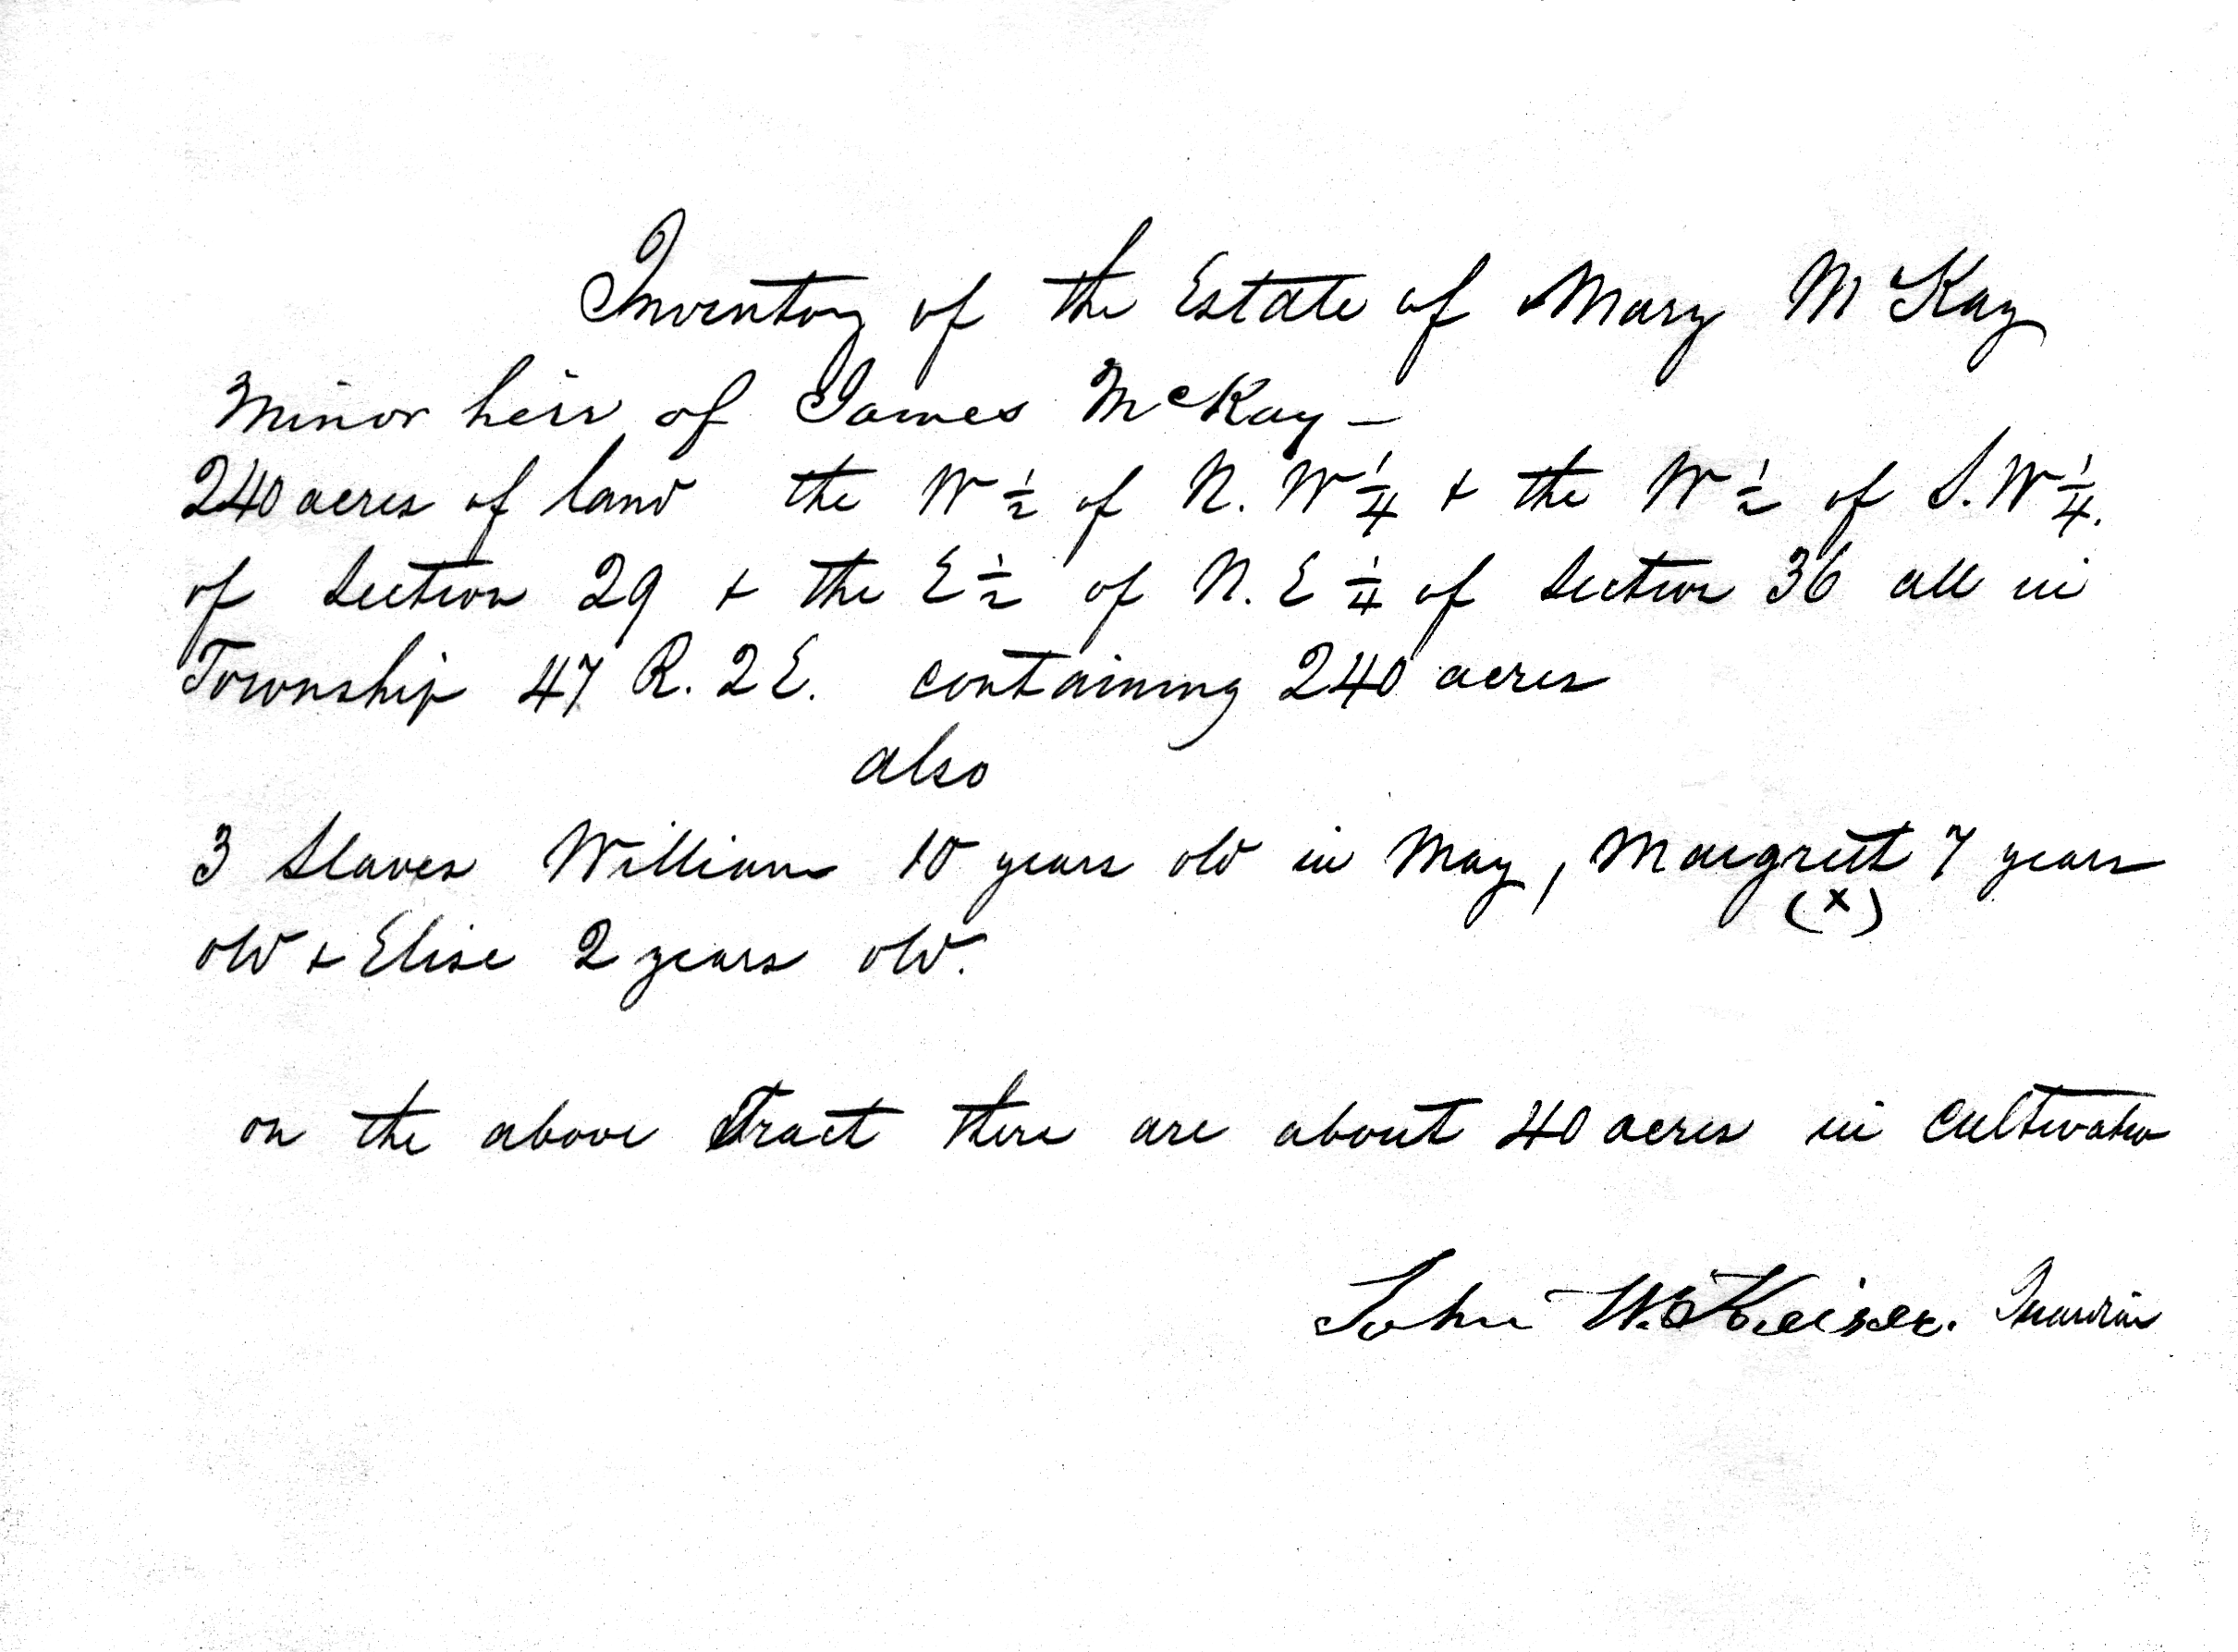 Inventory of the Estate of Mary McKay
Minor heir of James McKay –
240 acres of land the W ½ of N. W ¼ & the W ½ of S. W ¼.
of Section 29 & the E ½ of N. E ¼ of Section 36 all in
Township 47 R. 2 E. containing 240 acres
also
3 Slaves William 10 years old in May, Margrett 7 years
(x)
old & Elise 2 years old.
on the above Tract there are about 40 acres in Cultivation
John W. Keiser. Guardian